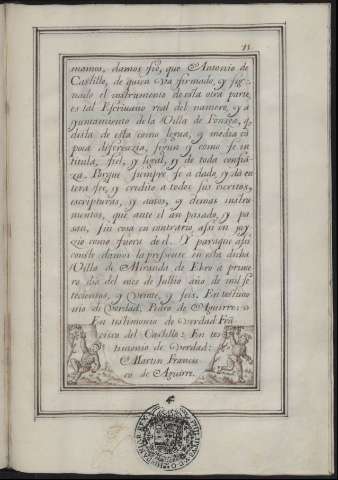 11
mamos, damos feè, que Antonio de
Castillo, de quien va firmado, y sig-
nado el instrumento de esta otra parte
es tal Escriuano real del numero, y a
yuntamiento de la Villa de Fonzea, q
dista de esta como legua, y media cō
poca diferenzia, segun y como se in
titula, fiel, y legal, y de toda confia
za. Porque siempre se a dado, y da en
tera feè, y credito a todos sus escritos,
escripturas, y autos, y demas instru
mentos, que ante el an pasado, y pa
san, sin cosa en contrario, asi en juy
zio como fuera de el. Y paraque asi
conste damos la presente en esta dicha
Villa de Miranda de Ebro a prime
ro dia del mes de Jullio año de mil se
tecientos, y veinte, y seis. En testimo
nio de Verdad: Pedro de Aguirre:
En testimonio de verdad Frā
cisco del Castillo: En tes
timonio de Verdad:
Martin Francis
co de Aguirre.